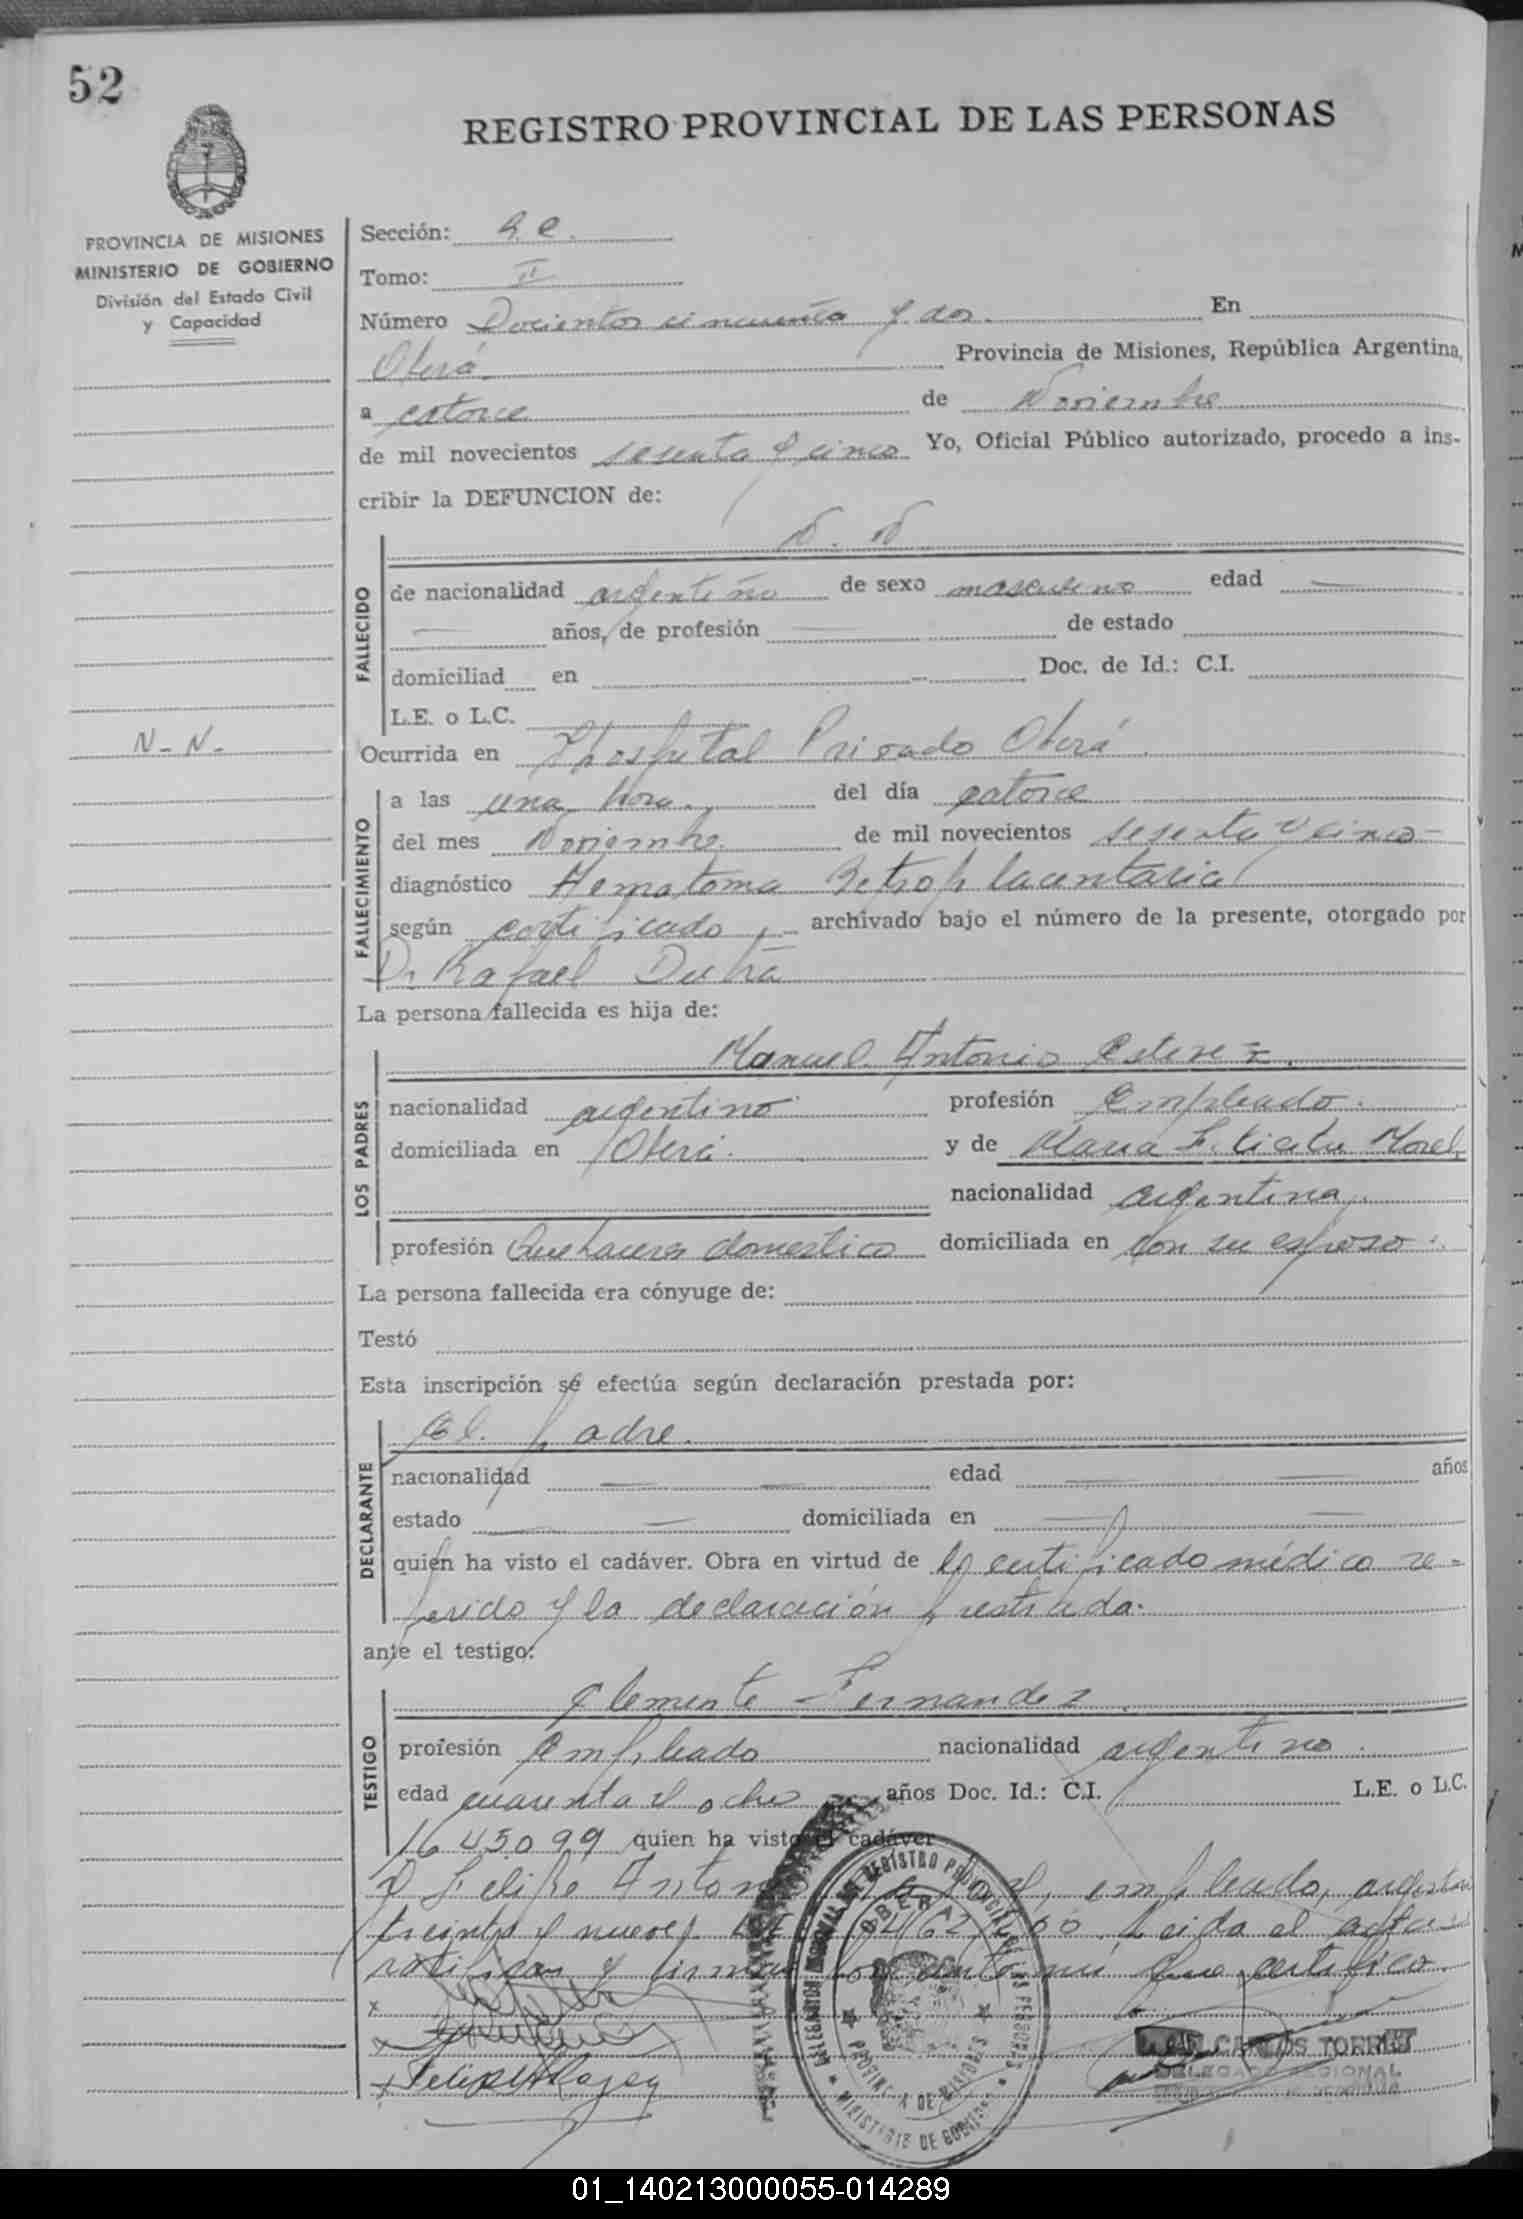 52
REGISTRO PROVINCIAL DE LAS PERSONAS
PROVINCIA DE MISIONES
MINISTERIO DE GOBIERNO
División del Estado Civil
y Capacidad
Sección:
Tomo: II
Número Docientos cincuenta y dos. En
Oberá. Provincia de Misiones, República Argentina,
a catorce de Noviembre
de mil novecientos sesenta y cinco Yo, Oficial Público autorizado, procedo a ins-
cribir la DEFUNCION de:
N. N
FALLECIDO
de nacionalidad argentino de sexo masculino edad —
— años, de profesión — de estado
domiciliad en Doc. de Id.: C.I.
L.E. o L.C.
N - N -
Ocurrida en Hospital Privado Oberá.
FALLECIMIENTO
a las una hora. del día catorce
del mes Noviembre. de mil novecientos sesenta y cinco -
diagnóstico Hematoma Retroplacentaria
según certificado, - archivado bajo el número de la presente, otorgado por
Dr Rafael Dutra
La persona fallecida es hija de:
LOS PADRES
Manuel Antonio Estevez.
nacionalidad argentino. profesión Empleado.
domiciliada en Oberá. y de Maria Morel,
nacionalidad argentina,
profesión Quehaceres domestico domiciliada en con su esposo.
La persona fallecida era cónyuge de:
Testó
Esta inscripción se efectúa según declaración prestada por:
DECLARANTE
El padre.
nacionalidad — — edad — — años
estado — — domiciliada en — —
quien ha visto el cadáver. Obra en virtud de certificado médico re-
ferido y la declaración prestada.
ante el testigo:
TESTIGO
Clemente Fernandez
profesión Empleado nacionalidad argentino.
edad cuarenta y ocho años Doc. Id.: C.I. L.E. o L.C.
1645099 quien ha visto el cadáver
Y Felipe empleado,
treinta y nueve, Leida el acta
ratifican y firman por ante mi que certifico.
x
x
x
DELEGACION REGIONAL DEL REGISTRO PROVINCIAL DE LAS PERSONAS
OBERA
PROVINCIA DE MISIONES
MINISTERIO DE GOBIERNO
CARLOS TORRES
DELEGADO REGIONAL
01_140213000055-014289